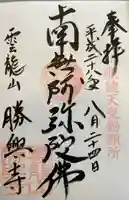 奉拝
平成二十八年八月二十四日
南無阿弥陀佛
雲龍山
勝興寺